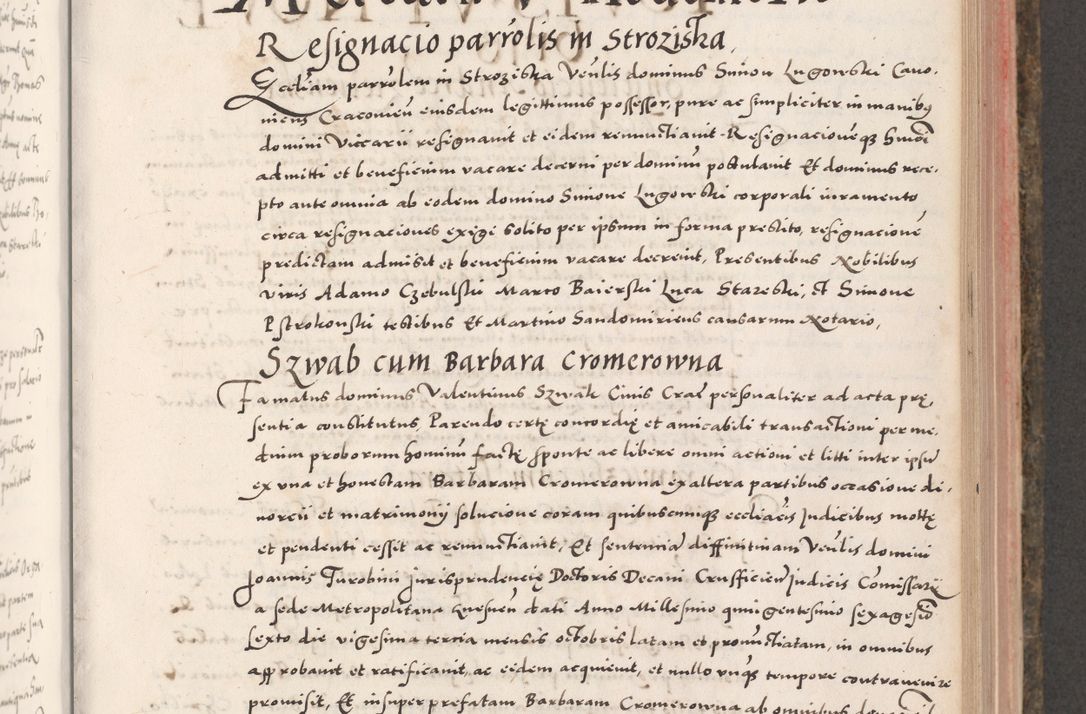 Resignacio parrolis in Stroziska
Eccliam parrolem in Stroziska Venlis dominus Simon Lugowski Cano-
niens Cracovien eiusdem legittimus possessor, pure ac simpliciter in manibus
domini Viccarii resignavit et eidem renunctiavit Resignacionemque huiusmodi
admitti et beneficium vacare decerni per dominum postulavit Et dominus rece-
pto ante omnia ab eodem domino Simone Lugowski corporali iuramento
circa resignaciones exigi solito per ipsum in forma prestito, resignacione
predictam admisit et beneficium vacare decrevit, Presentibus Nobilibus
viris Adamo Czebulski Marco Baierski Luca Stareski, et Simone
Pstrokonski testibus Et Martino Sandomiriens causarum Notario,
Szwab cum Barbara Cromerowna
Famatus dominus Valentinus Szwab Civis Crac personaliter ad acta prę,
sentia constitutus, Parendo certę concordię et amicabili transactioni per me,
dium proborum hominum factę sponte ac libere omni actioni et litti inter ipsum
ex una et honestam Barbaram Cromerowna ex altera partibus occasione di-
vorcii et matrimonij solucione coram quibuscumque eccliacis Judicibus mottę
et pendenti cessit ac renunctiavit, Et sentenciam diffinitivam Venlis domini
Joannis Turobini Jurisprudencię Doctoris Decani Crusficien Judicis Comissarij
a sede Metropolitana Gnesnen dati Anno Millesimo quingentesimo sexagesimo
sexto die vigesima tercia mensis octobris latam et pronunctiatam, in omnibus
approbavit et ratificavit, ac eidem acquievit, et nullo unquam tempore contravenire
promisit, Et insuper prefatam Barbaram Cromerowna ab omnibus